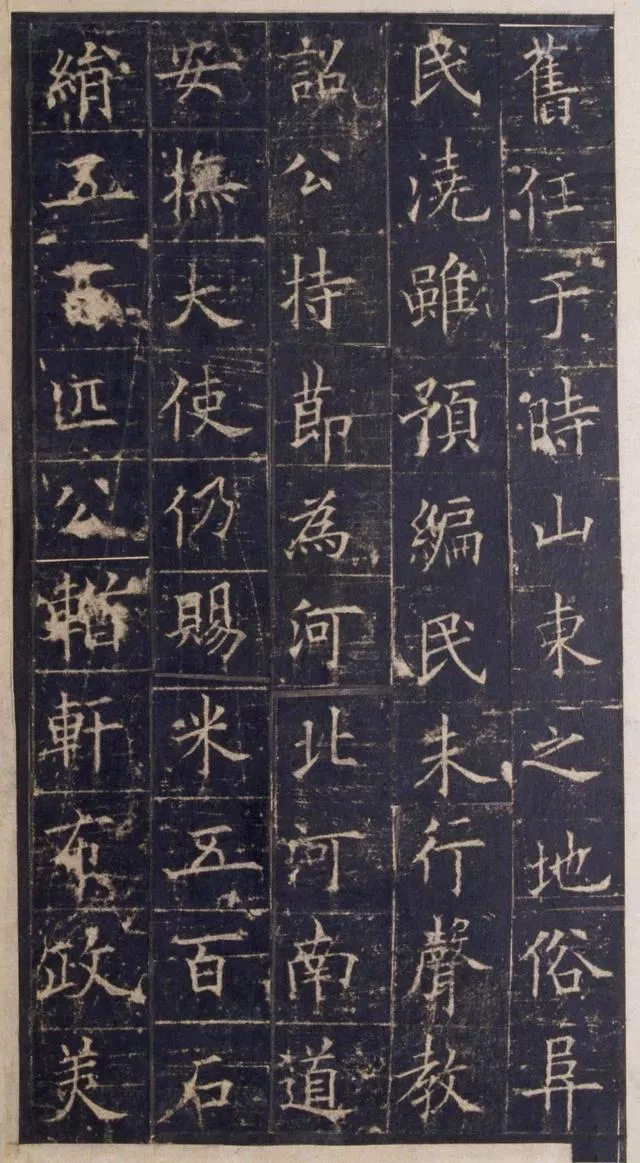 舊任于時山東之地俗阜
民澆雖預編民未行聲教
詔公持節為河北河南道
安撫大使仍賜米五百石
絹五百匹公暫軒布政美